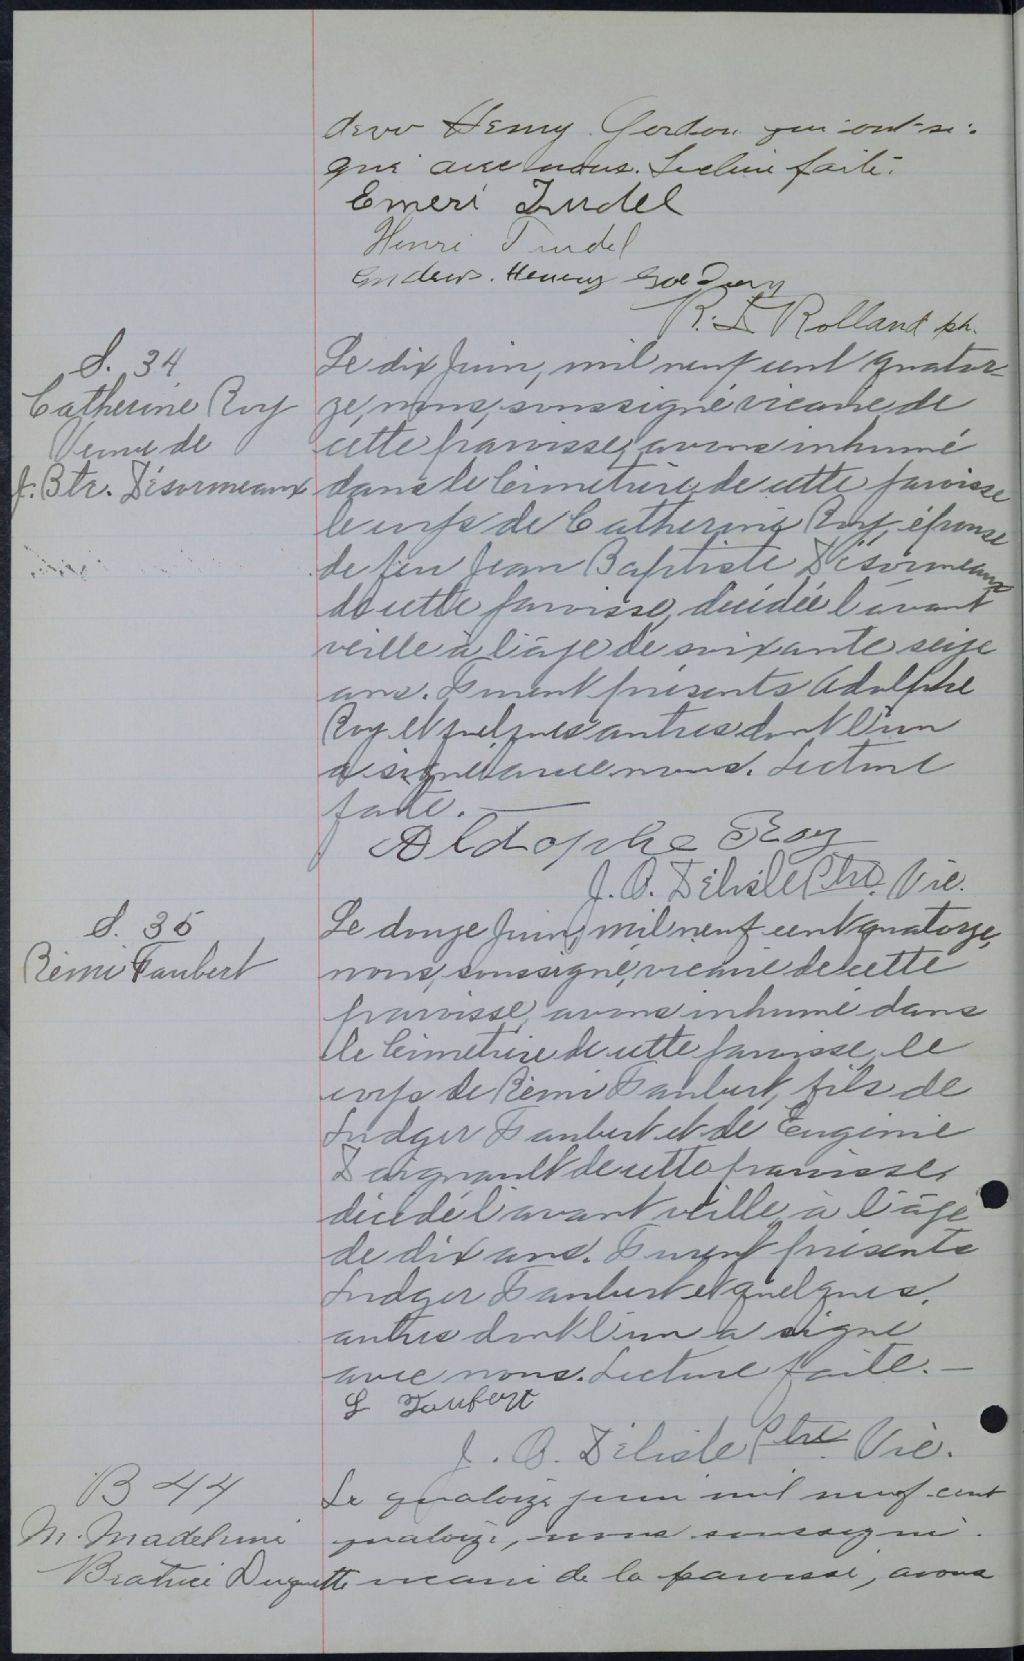 drew Henry Gordon qui ont si-
gné avec nous. Lecture faite.
Emeri Trudel
Henri Trudel
Andrew. Henery
R. Rolland ptr.
S. 34
Catherine Roy
Veuve de
J. Bte. Désormeaux
Le dix Juin, mil neuf cent quator-
ze, nous, soussigné vicaire de
cette paroisse, avons inhumé
dans le Cimetière de cette paroisse
le corps de Catherine Roy, épouse
de feu Jean Baptiste Désormeaux
de cette paroisse, décédée l'avant
veille à l'âge de soixante seize
ans. Furent présents Adolphe
Roy et quelques autres dont l'un
a signé avec nous. Lecture
faite.
Aldophe Roy
J. O. Délisle Ptre. Vic.
S. 35
Rémi Faubert
Le douze Juin, mil neuf cent quatorze,
nous, soussigné, vicaire de cette
paroisse, avons inhumé dans
le Cimetière de cette paroisse, le
corps de Rémi Faubert, fils de
Ludger Faubert et de Eugénie
Daignault de cette paroisse,
décédé l'avant veille, à l'âge
de dix ans. Furent présents
Ludger Faubert et quelques
autres dont l'un a signé
avec nous. Lecture faite. —
L Faubert
J. O. Délisle Ptre. Vic.
B 44
M. Madeleine
Béatrice Duquette
Le quatorze juin mil neuf cent
quatorze, nous soussigné
vicaire de la paroisse, avons